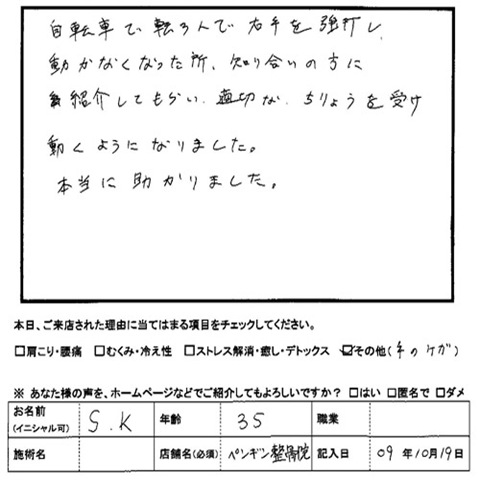 自転車で転ろんで右手を強打し、
動かなくなった所、知り合いの方に
紹介してもらい、適切な、ちりょうを受け
動くようになりました。
本当に助かりました。
本日、ご来店された理由に当てはまる項目をチェックしてください。
□肩こり・腰痛 □むくみ・冷え性 □ストレス解消・癒し・デトックス ☑その他(手のケガ)
※ あなた様の声を、ホームページなどでご紹介してもよろしいですか？ □はい □匿名で □ダメ
お名前(イニシャル可) S.K 年齢 35 職業
施術名 店舗名(必須) ペンギン整骨院 記入日 09 年10月19日